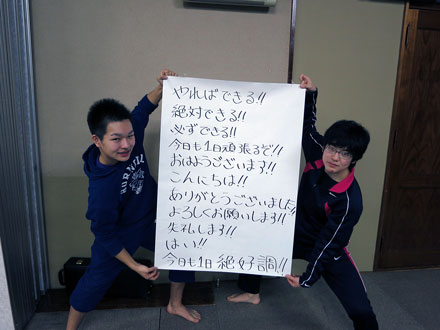 やればできる!!
絶対できる!!
必ずできる!!
今日も1日頑張るぞ!!
おはようございます!!
こんにちは!!
ありがとうございました!!
よろしくお願いします!!
失礼します!!
はい!!
今日も1日絶好調!!